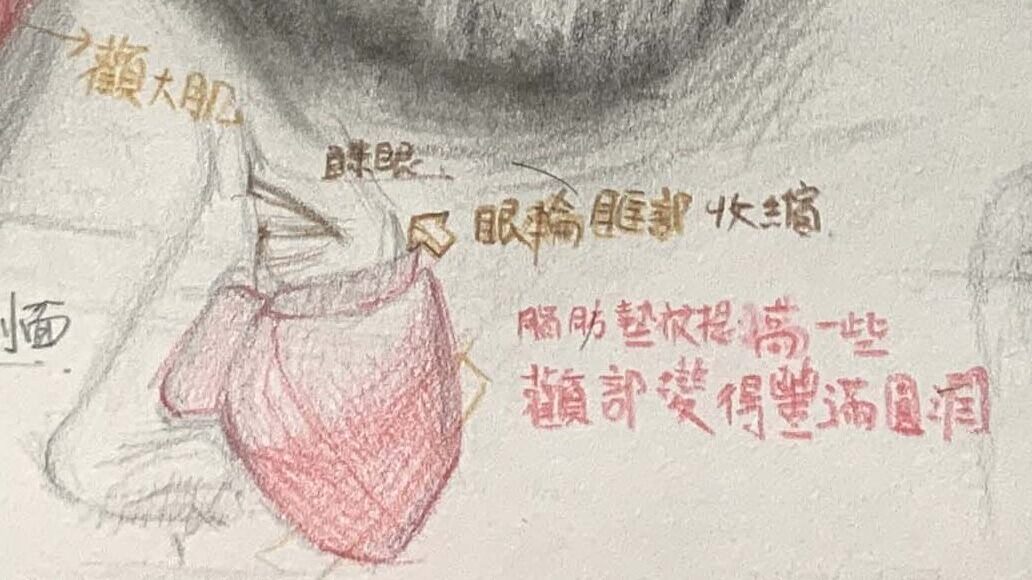 顴大肌
眯眼
眼輪匝部 收縮
側面
腦肪墊被提高一些
顴部變得豐滿圓潤